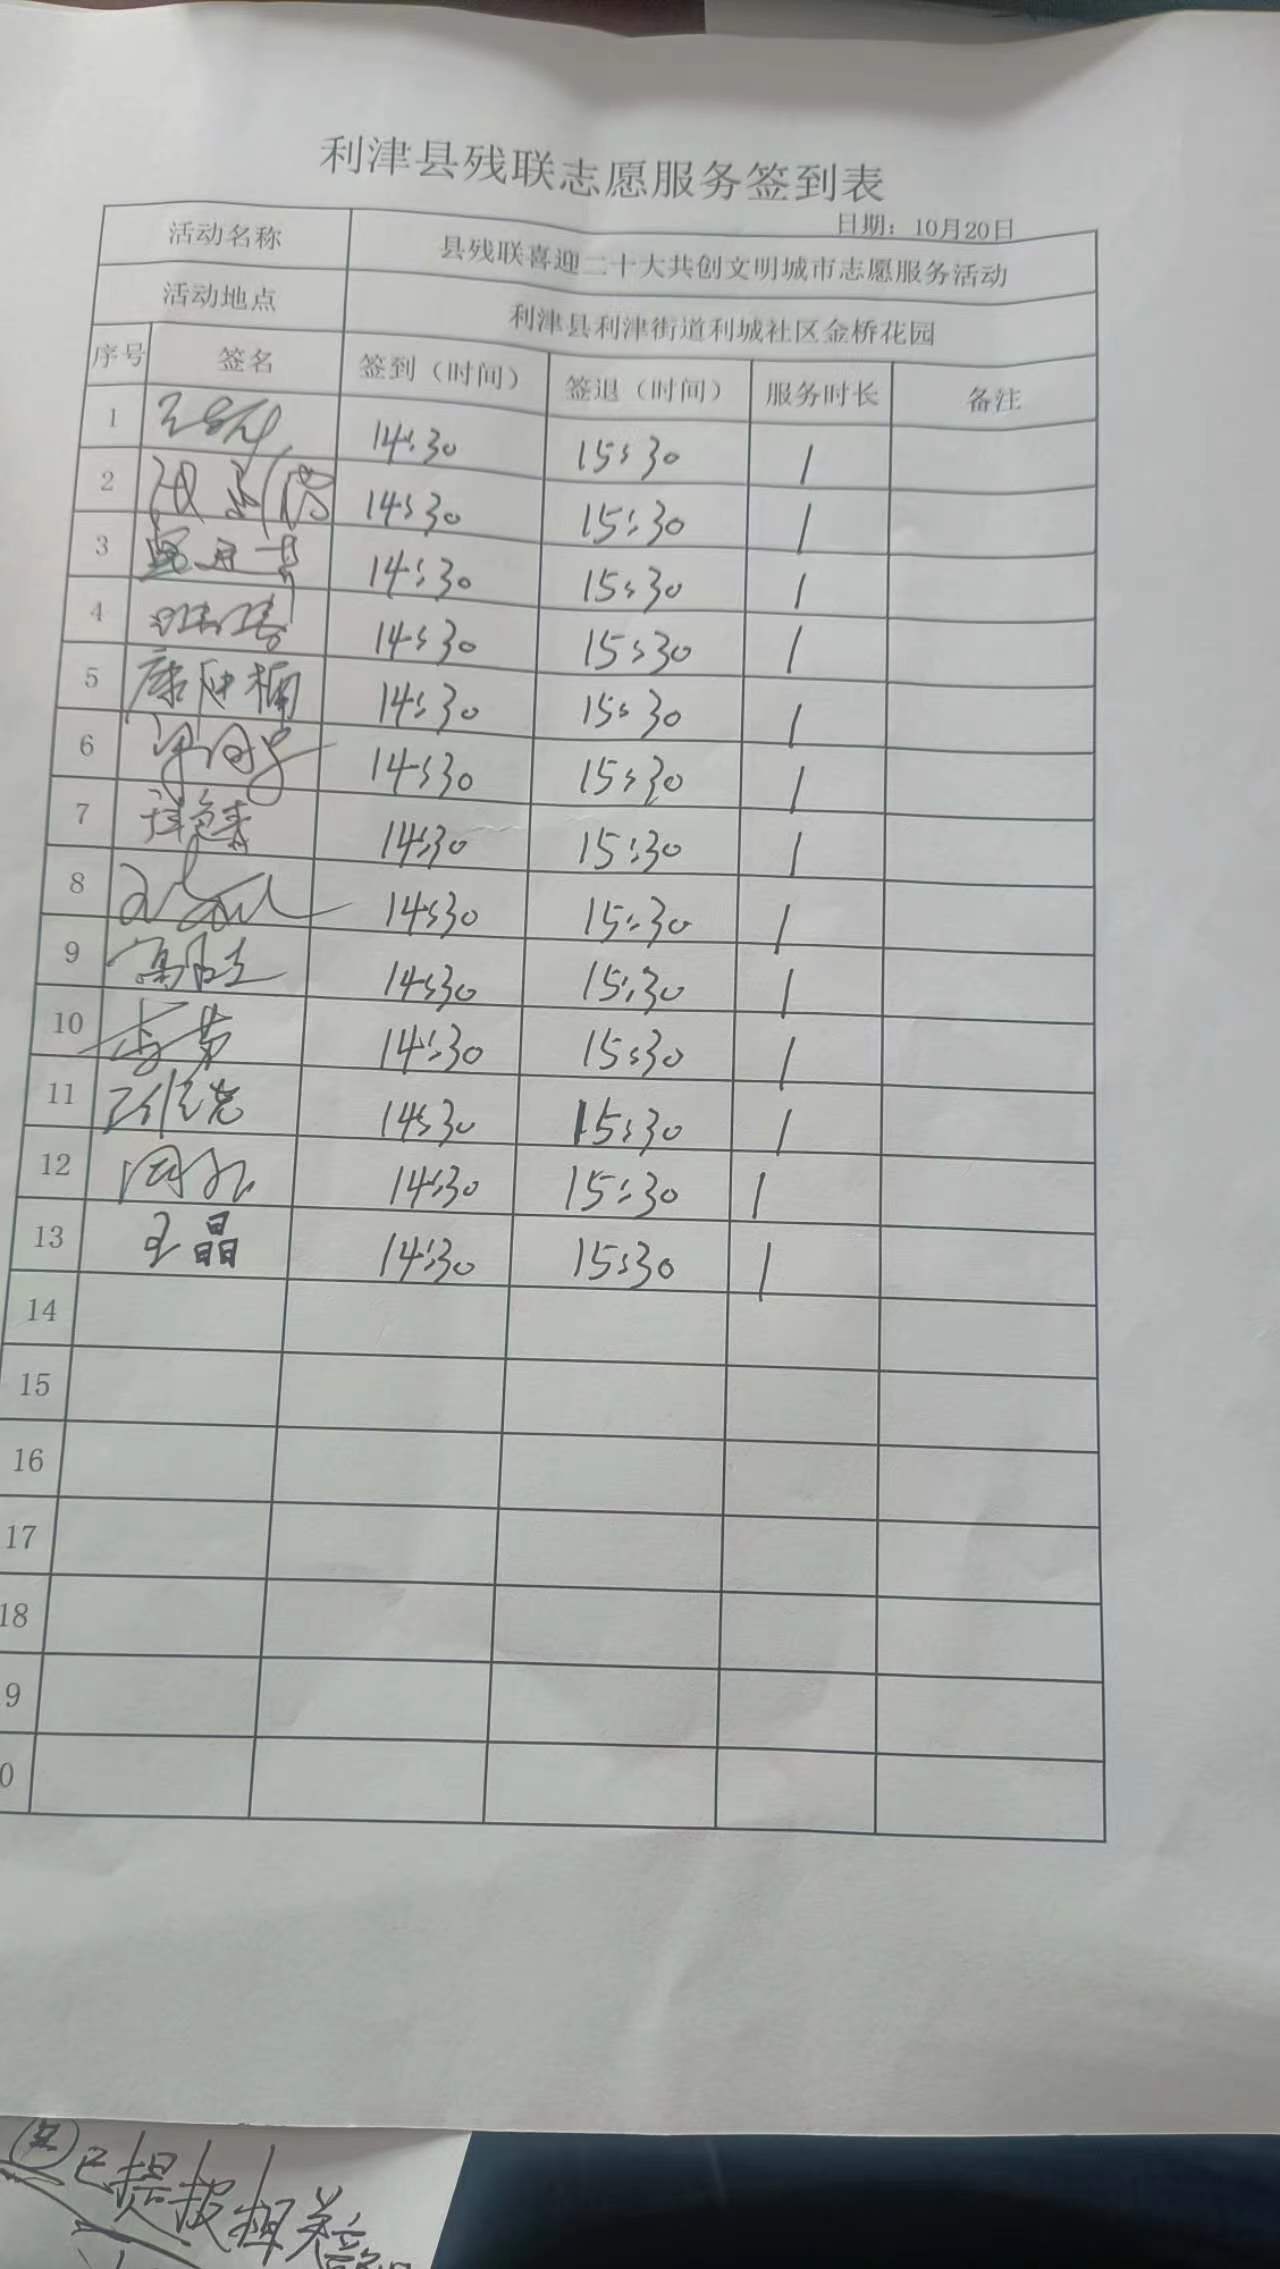 利津县残联志愿服务签到表
日期：10月20日
活动名称 县残联喜迎二十大共创文明城市志愿服务活动
活动地点 利津县利津街道利城社区金桥花园
序号 签名 签到（时间） 签退（时间） 服务时长 备注
1 14:30 15:30 1
2 14:30 15:30 1
3 14:30 15:30 1
4 14:30 15:30 1
5 14:30 15:30 1
6 14:30 15:30 1
7 14:30 15:30 1
8 14:30 15:30 1
9 14:30 15:30 1
10 14:30 15:30 1
11 14:30 15:30 1
12 14:30 15:30 1
13 王晶 14:30 15:30 1
14
15
16
17
18
9
0
已提报相关